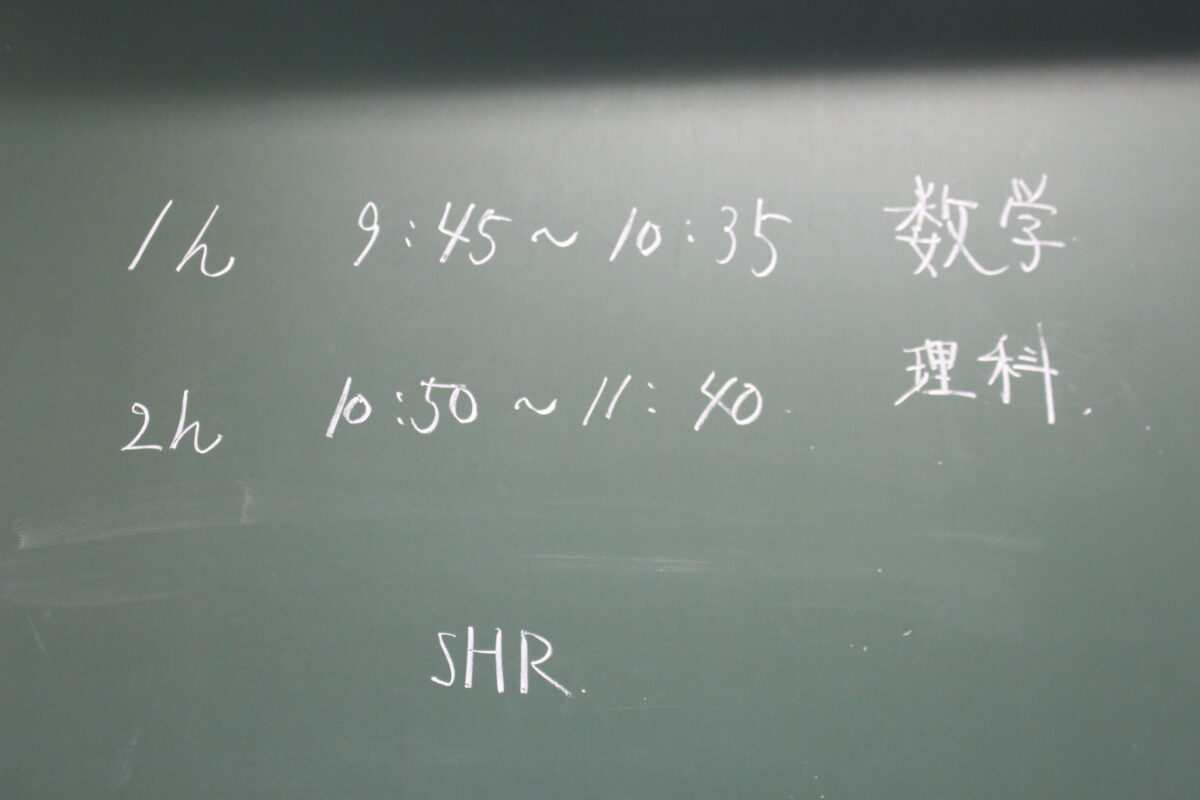 1h 9:45～10:35 数学
2h 10:50～11:40 理科.
SHR.